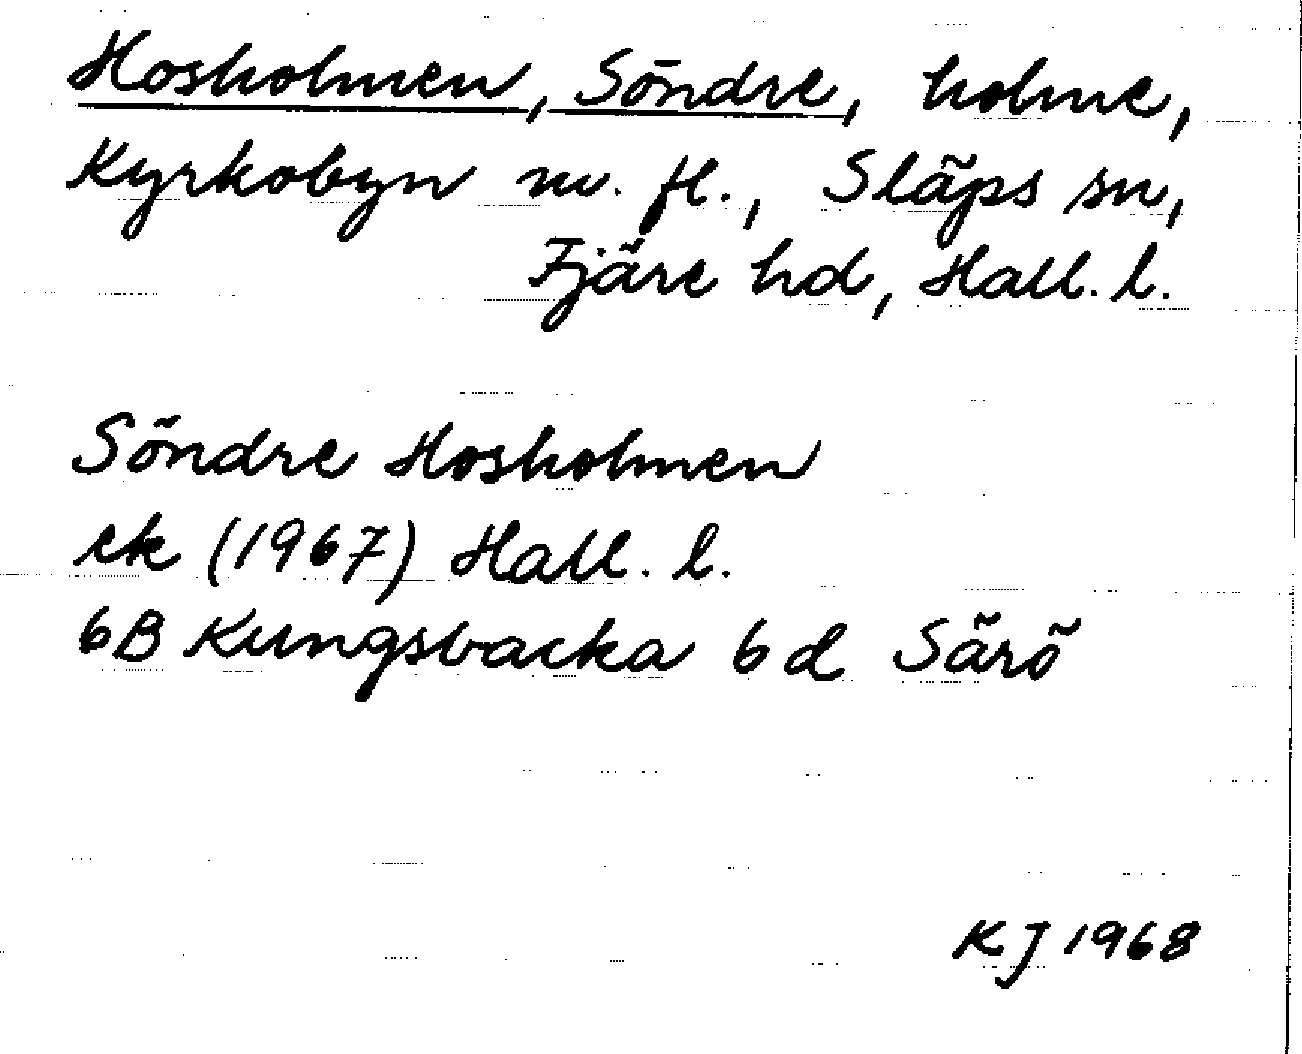 Hosholmen, Söndre, holme,
Kyrkobyn m. fl., Släps sn,
Fjäre hd, Hall. l.
Söndre Hosholmen
ek (1967) Hall. l.
6B Kungsbacka 6d Särö
KJ 1968